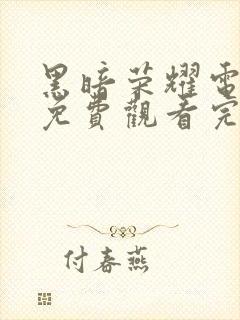 黑暗荣耀電
免費觀看完
付春燕